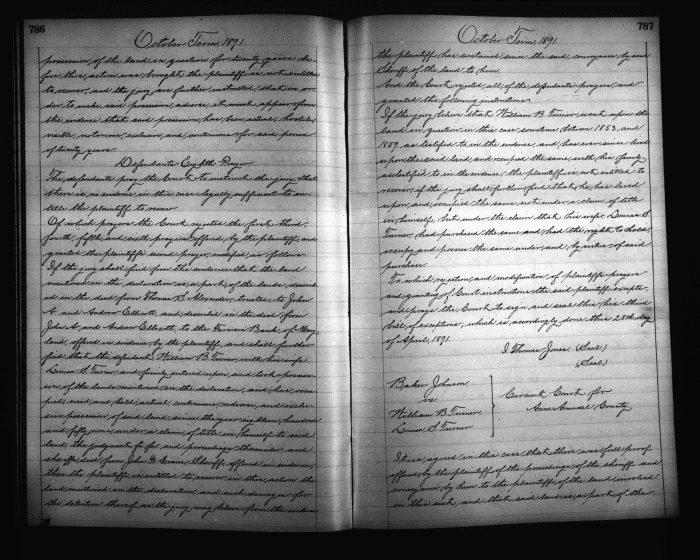 786
October Term, 1891.
possession of the land in question for twenty years, be-
fore this action was brought, the plaintiff is not entitled
to recover, and the jury are further instructed, that in or-
der to make said possession adverse, it must appear from
the evidence that said possession has been actual, hostile,
visible, notorious, exclusive, and continuous for said period
of twenty years.
Defendants Eighth Prayer
The defendants pray the Court to instruct the jury, that
there is no evidence in this case legally sufficient to en-
title the plaintiff to recover.
Of which prayers the Court rejected the first, third,
fourth, fifth, and sixth prayers offered by the plaintiff, and
granted the plaintiffs second prayer, modified, as follows:
If the jury shall find from the evidence that the land
mentioned in the declaration, is a part of the lands, describ-
ed in the deed from Thomas S. Alexander, trustee, to John
A. and Andrew Ellicott, and described in the deed from
John A. and Andrew Ellicott, to the Farmers Bank of Mary
land, offered in evidence by the plaintiff, and shall further
find that the defendant William B. Turner, with his wife
Louisa S. Turner and family entered upon and took possess-
ion of the lands mentioned in the declaration, and has occu-
pied, used, and held, actual, continuous, adverse, and exclu-
sive possession of said land since the year eighteen hundred
and fifty nine, under a claim of title in himself to said
land, the judgment fi fa and proceedings thereunder, and
sheriffs deed from John H. Evans, Sheriff, offered in evidence,
then the plaintiff is entitled to recover in this action the
land mentioned in the declaration, and such damages for
the detention thereof as the jury may believe from the eviden
787
October Term, 1891.
the plaintiff has sustained since the said conveyance by said
Sheriff of the land to him.
And the Court rejected, all, of the defendants prayers, and
granted the following instructions.
If the jury believe that William B. Turner went upon the
land in question in this case sometime between 1853 and
1859, as testified to in the evidence, and has ever since lived
upon the said land, and occupied the same, with his family,
as testified to in the evidence, the plaintiff is not entitled to
recover, if the jury shall further find that he has lived
upon, and occupied the same, not under, a claim of title
in himself, but under the claim that his wife, Louisa S.
Turner, had purchased the same and had the right to hold,
occupy and possess the same under, and by virtue of said
purchase.
To which rejection, and modification of plaintiffs prayers
and granting of Court instructions the said plaintiff excepts,
and prays the Court to sign and seal this his third
bill of exceptions, which is accordingly done this 28th day
of April, 1891.
I. Thomas Jones (Seal)
(Seal)
Baker Johnson
vs.
William B. Turner
Louisa S. Turner
Circuit Court for
Anne Arundel County
It is agreed in this case that there was full proof
offered by the plaintiff of the proceedings of the sheriff and
conveyance by him to the plaintiff of the land involved
in this suit, and that said land is a part of the